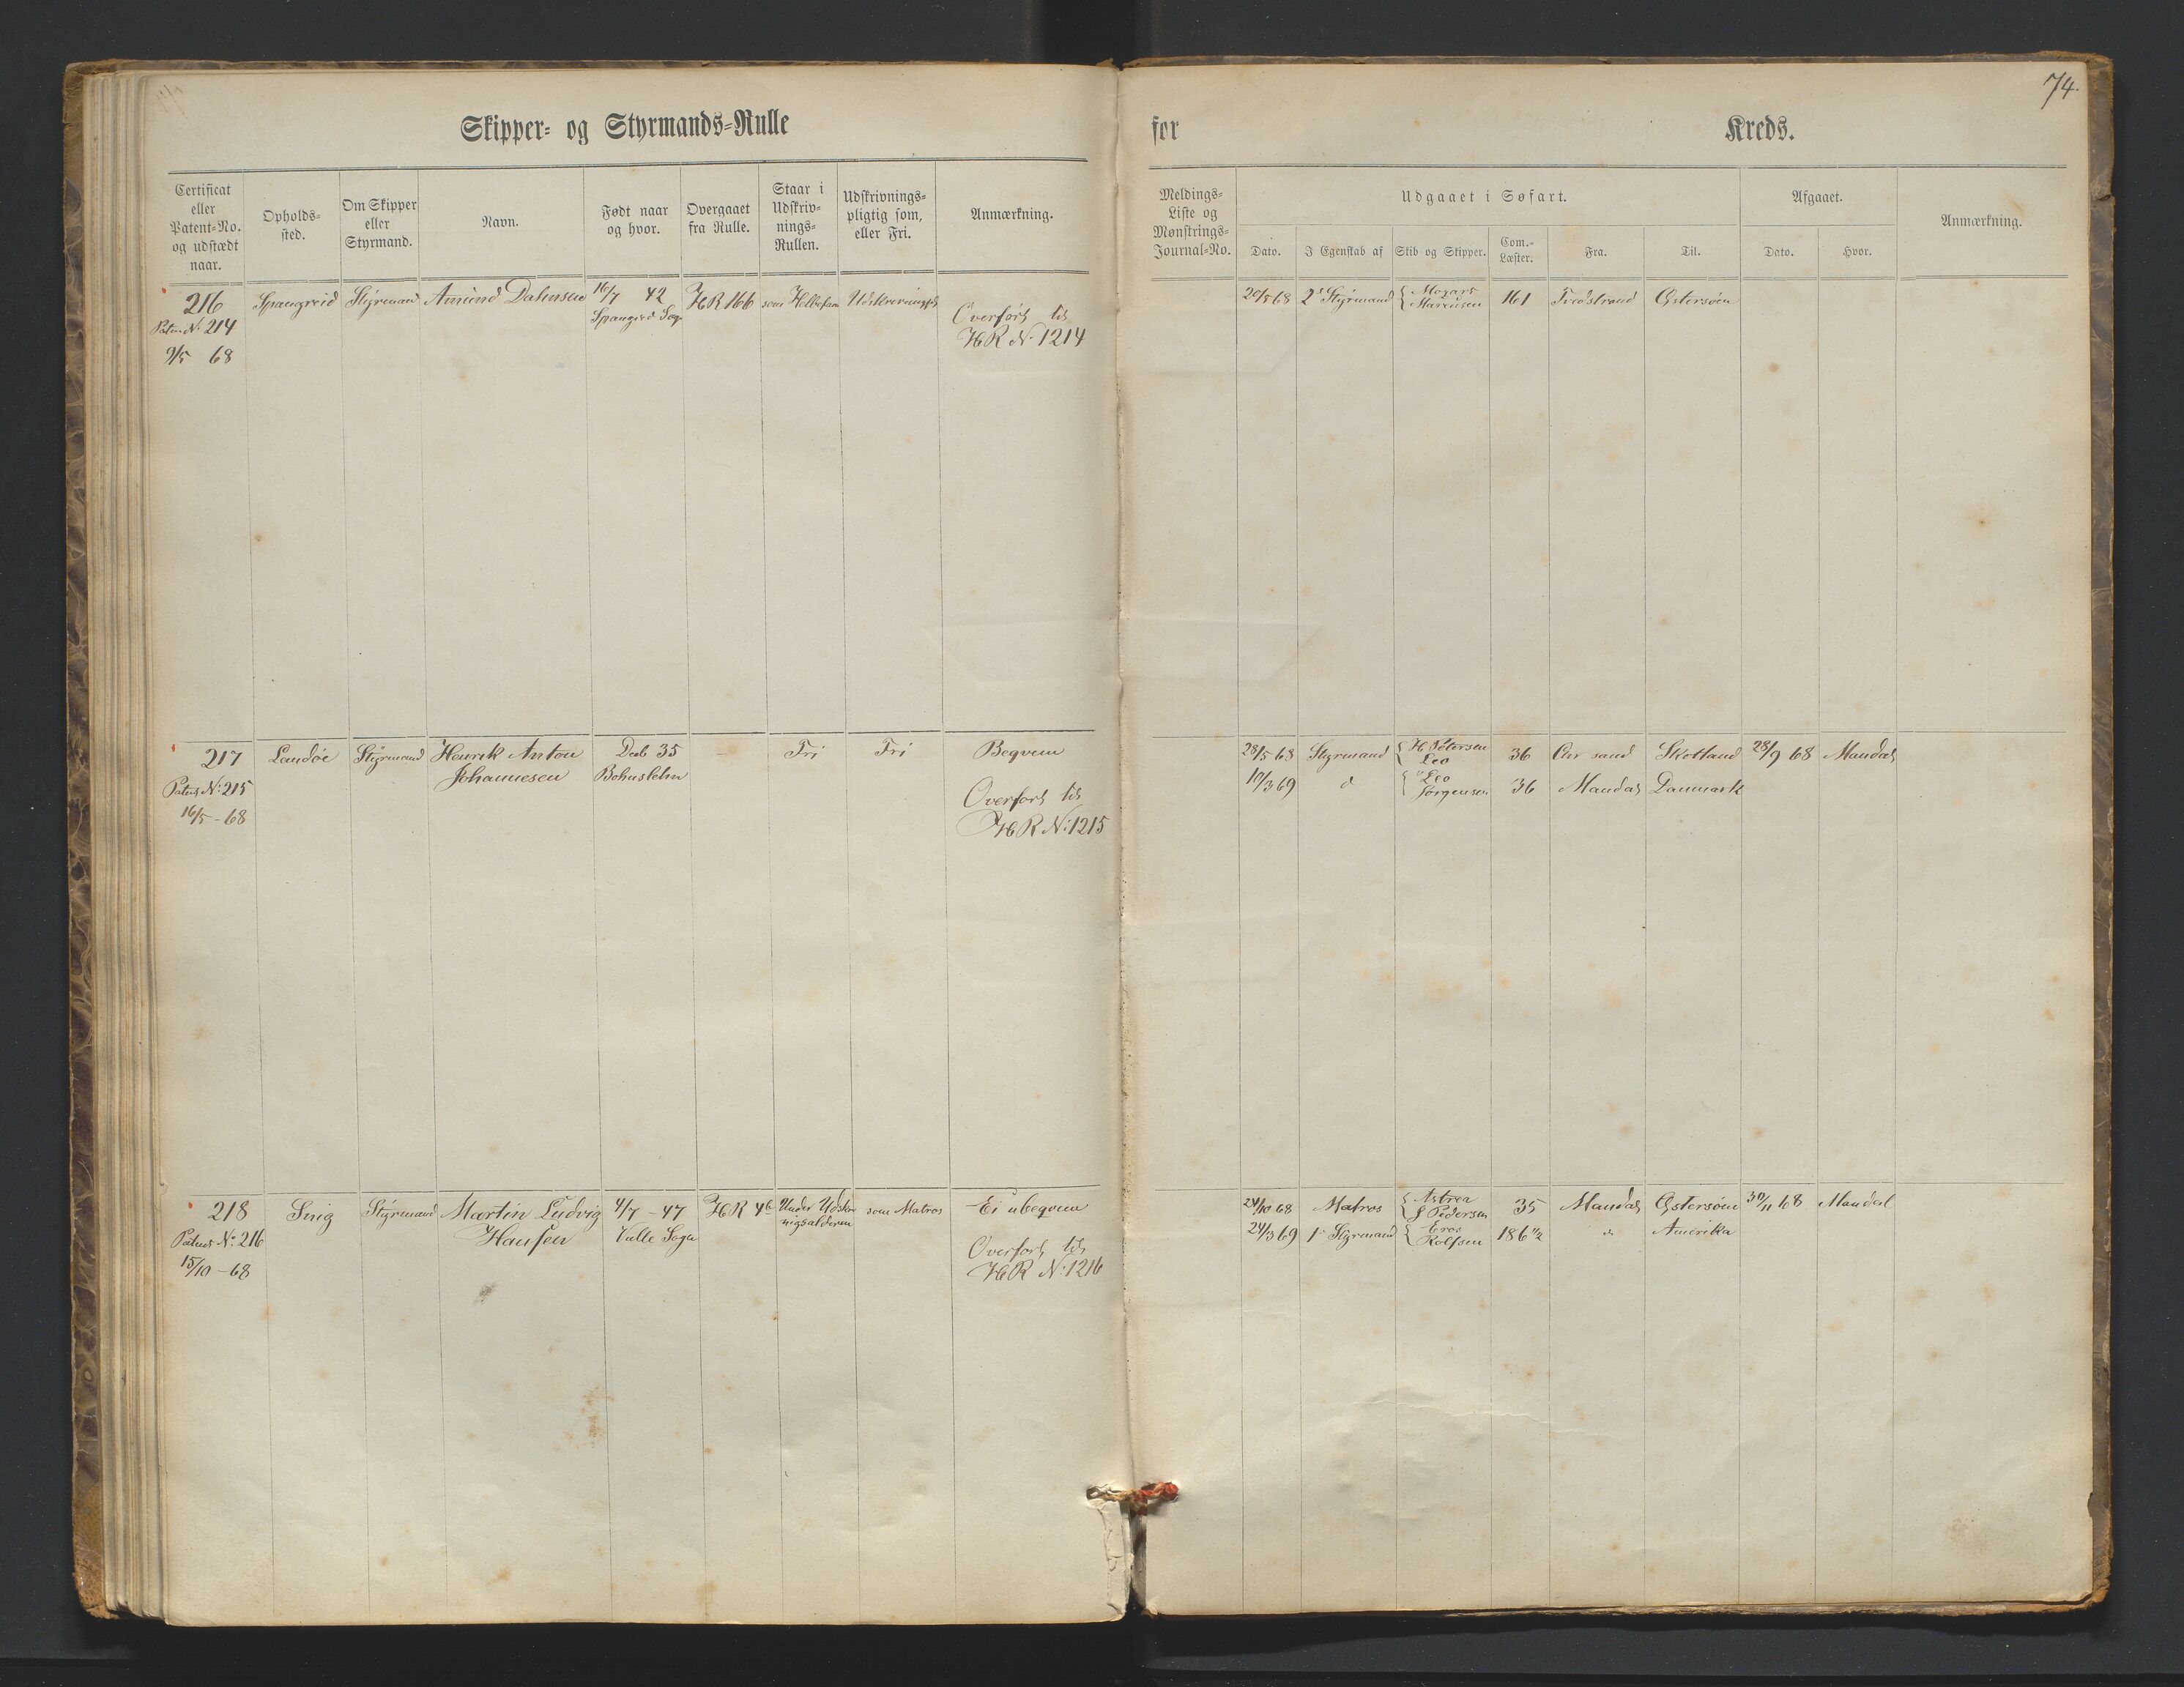 74.
Skipper- og Styrmands-Rulle
for Kreds.
Certificat eller Patent-No. og udstædt naar.
Opholds-sted.
Om Skipper eller Styrmand.
Navn.
Født naar og hvor.
Overgaaet fra Rulle.
Staar i Udskriv-nings-Rullen.
Udskrivnings-pligtig som, eller Fri.
Anmærkning.
Meldings-Liste og Mønstrings-Journal-No.
Udgaaet i Søfart.
Dato.
I Egenskab af
Skib og Skipper.
Com.-Læster.
Fra.
Til.
Afgaaet.
Dato.
Hvor.
Anmærkning.
216 Spangreid Styrmand Amund 16/7 42 HR 166 som
Patent No. 214 Spangreid Sogn
9/5 68
Overført til
HR No 1214
20/5 68 2d Styrmand Mozart 161 Østersøen
217 Landøe Styrmand Henrik Anton Decb 35 — Fri Fri Beqvem
Patent No: 215 Johannesen
16/5 - 68
Overført til
HR No: 1215
28/5 68 Styrmand H Petersen Leo 36 Chr sand Skotland 28/9 68 Mandal
10/3 69 d Leo Jørgensen 36 Mandal Danmark
218 Snig Styrmand Martin Ludvig 4/7 - 47 HR 46 Under Udskriv som Matros Ei ubeqvem
Patent No: 216 Hansen Valle Sogn nigsalderen
15/10 - 68
Overført til
HR No: 1216
24/10 68 Matros Astrea J Pedersen 35 Mandal Østersøen 30/11 68 Mandal
24/3 69 1e Styrmand Eros Rolfsen 186 1/2 d Amerika